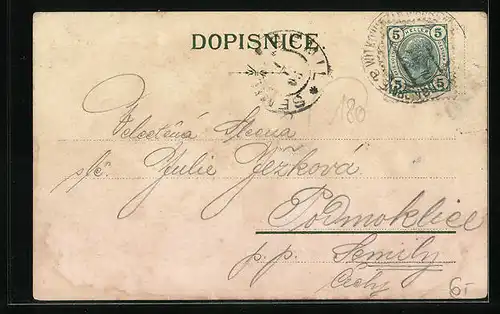 DOPISNICE
5 HELLER 5
5 5
SEMIL
180
Velectěná Slečna
slč. Julie Ježková
Podmoklice
p. p. Semily
Čechy
6.-